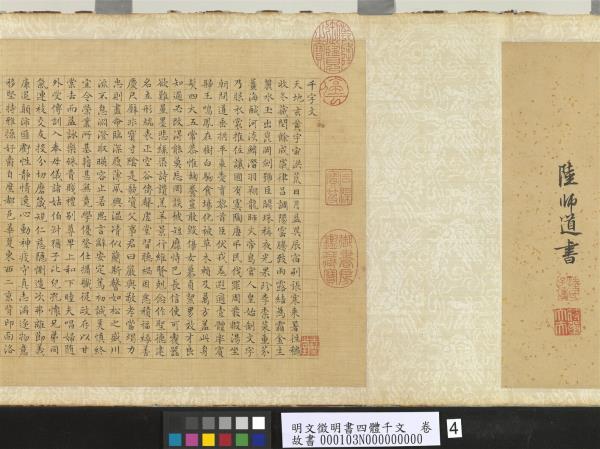 陸師道書
千字文
天地玄黃宇宙洪荒日月盈昃辰宿列張寒來暑往穐
收冬藏閏餘成歲律呂調陽雲騰致雨露結為霜金生
麗水玉出崑岡劍號巨闕珠稱夜光果珍李柰菜重芥
薑海鹹河淡鱗潛羽翔龍師火帝鳥官人皇始制文字
乃服衣裳推位讓國有虞陶唐弔民伐罪周發殷湯坐
朝問道垂拱平章愛育黎首臣伏戎羌遐邇壹體率賓
歸王鳴鳳在樹白駒食場化被草木賴及萬方蓋此身
髮四大五常恭惟鞠養豈敢毀傷女慕貞絜男效才良
知過必改得能莫忘罔談彼短靡恃己長信使可覆器
欲難量墨悲絲染詩讚羔羊景行維賢剋念作聖德建
名立形端表正空谷傳聲虛堂習聽禍因惡積福緣善
慶尺璧非寶寸陰是競資父事君曰嚴與敬孝當竭力
忠則盡命臨深履薄夙興溫凊似蘭斯馨如松之盛川
流不息淵澄取暎容止若思言辭安定篤初誠美慎終
宜令榮業所基籍甚無竟學優登仕攝職從政存以甘
棠去而益詠樂殊貴賤禮別尊卑上和下睦夫唱婦隨
外受傅訓入奉母儀諸姑伯叔猶子比兒孔懷兄弟同
氣連枝交友投分切磨箴規仁慈隱惻造次弗離節義
廉退顛沛匪虧性靜情逸心動神疲守真志滿逐物意
移堅持雅操好爵自縻都邑華夏東西二京背邙面洛
明文徵明書四體千文 卷
故書000103N000000000
4